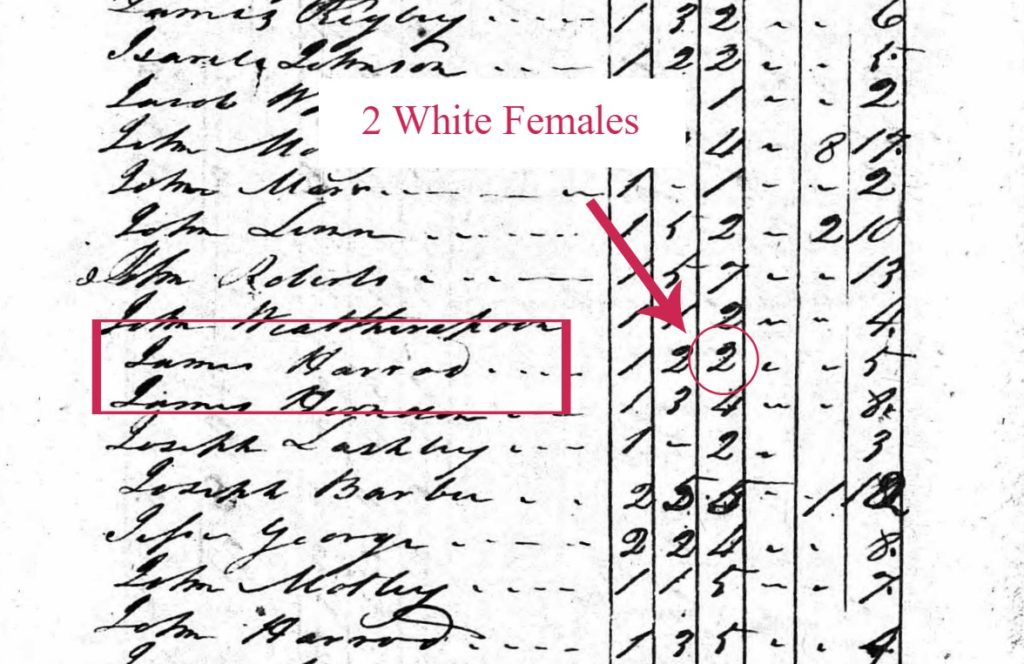 James Rigby - - - - 1 3 2 - - 6
Isarele Johnson - - - - 1 2 2 - - 5
Jacob W 1 - - 2
2 White Females
John Mo 4 - 8 17
John Marr - - - - 1 - 1 - - 2
John Linn - - - - - 1 5 2 - 2 10
John Roberts - - - - 1 5 7 - - 13
John Weatherspoon 1 1 2 - - 4
James Harrod - - - - 1 2 2 - - 5
James Herndon - - 1 3 4 - - 8
Joseph Lashley - - - 1 - 2 - 3
Joseph Barber - - 2 5 5 - 1
Jesse George - - - - - 2 2 4 - - 8
John Motley - - - - 1 1 5 - - 7
John Harrod - - - - 1 3 5 - -